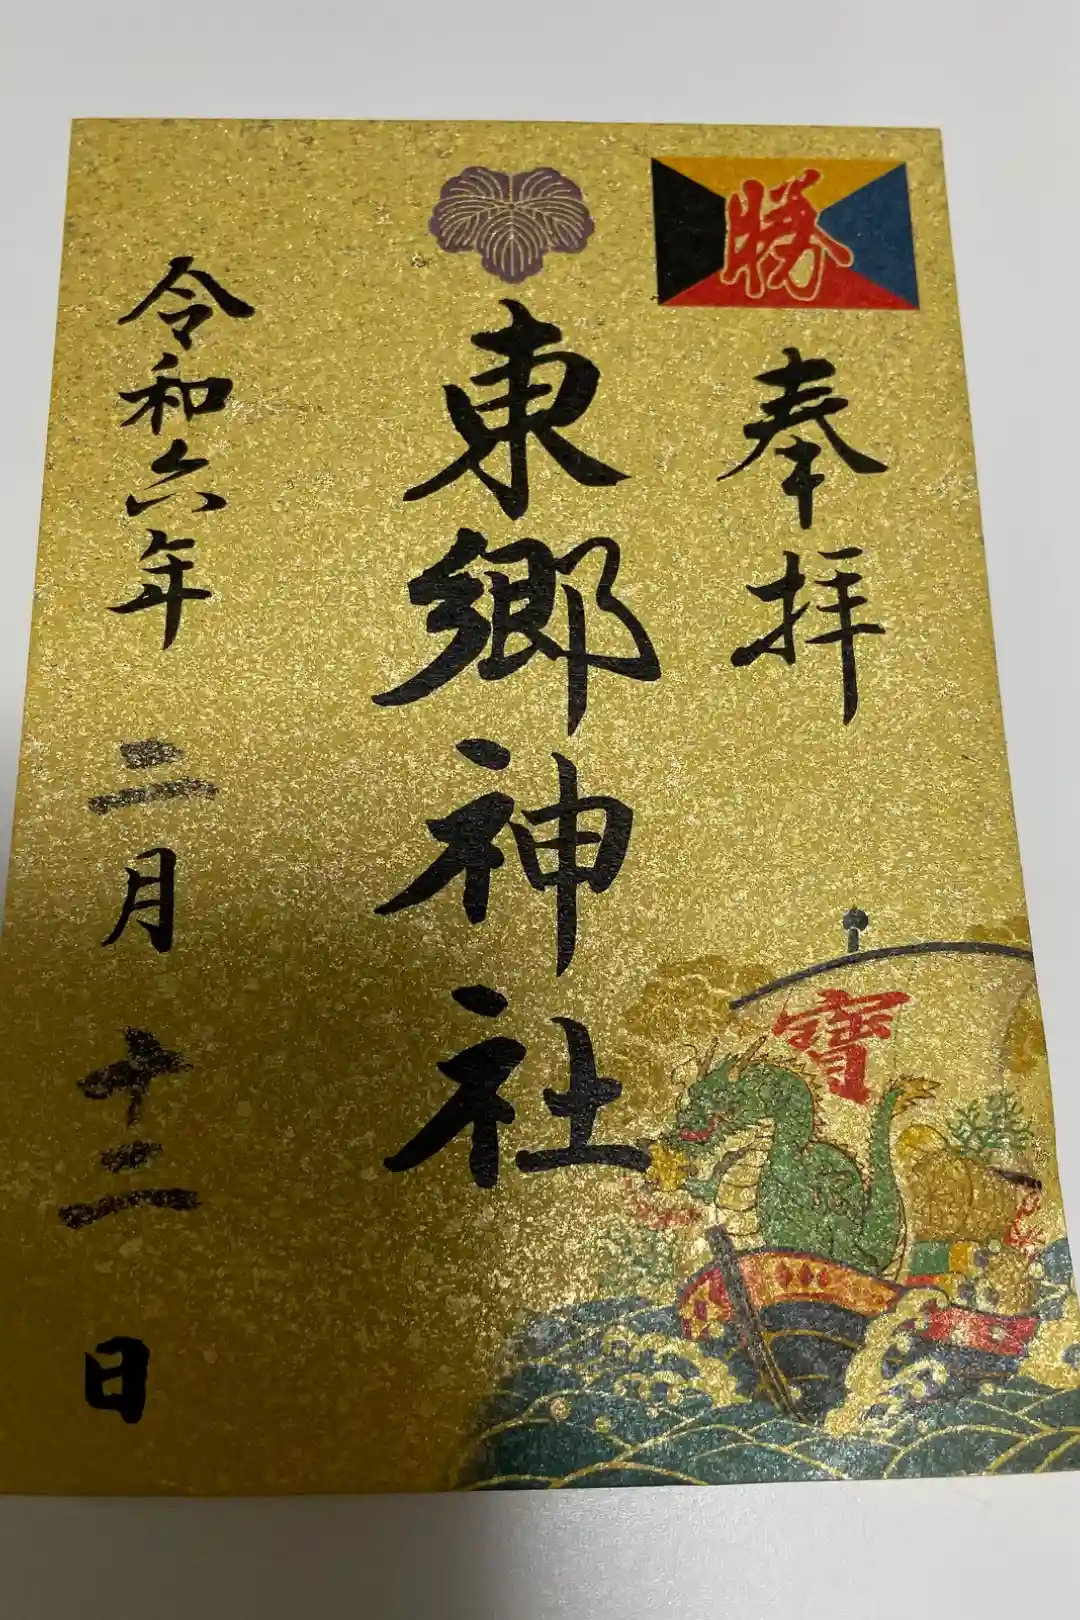 勝
奉拝
寶
東郷神社
令和六年 二月 十二日